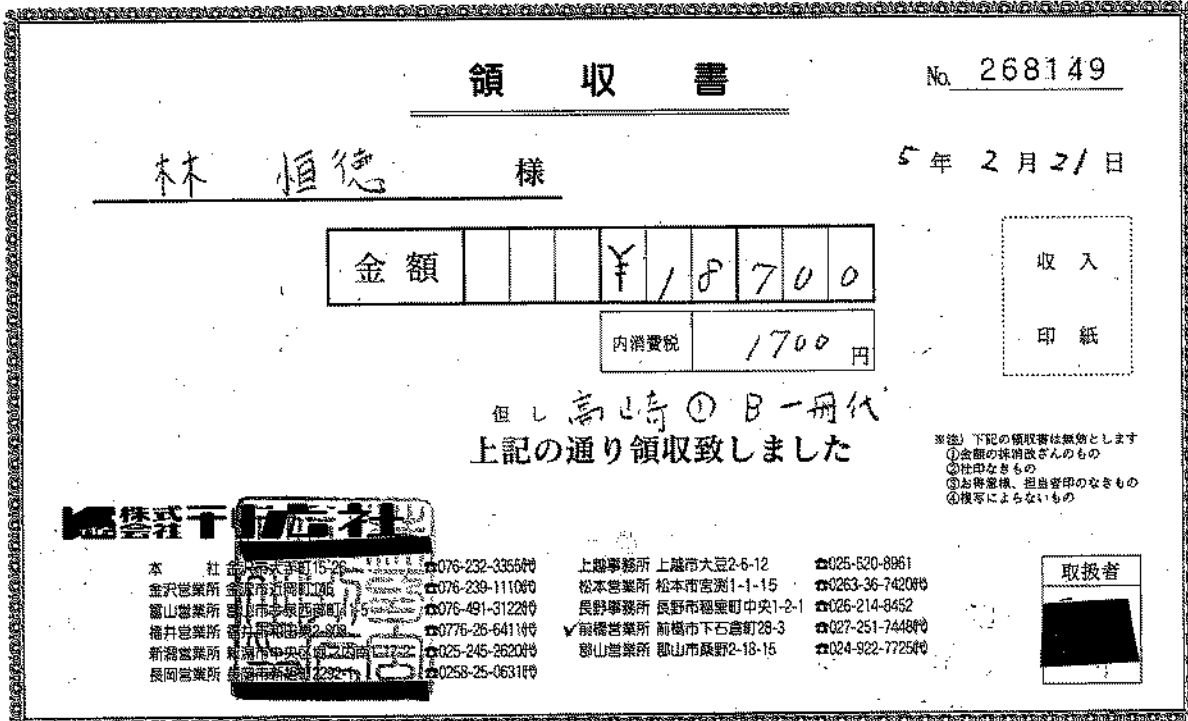 領収書
No. 268149
林 恒徳 様
5年2月21日
金額 ¥18700
内消費税 1700円
収入
印紙
但し 高崎① B一冊代
上記の通り領収致しました
※注) 下記の領収書は無効とします
①金額の抹消改ざんのもの
②社印なきもの
③お得意様、担当者印のなきもの
④複写によらないもの
株式会社
本社 金沢市大手町15-26 ☎076-232-3355㈹
金沢営業所 金沢市近岡町 ☎076-239-1110㈹
富山営業所 ☎076-491-3122㈹
福井営業所 福井市和田東2-908 ☎0776-26-6411㈹
新潟営業所 新潟市中央区 ☎025-245-2620㈹
長岡営業所 ☎0258-25-0631㈹
上越事務所 上越市大豆2-6-12 ☎025-520-8961
松本営業所 松本市宮渕1-1-15 ☎0263-36-7420㈹
長野事務所 長野市稲葉町中央1-2-1 ☎026-214-8452
✓前橋営業所 前橋市下石倉町28-3 ☎027-251-7448㈹
郡山営業所 郡山市桑野2-18-15 ☎024-922-7725㈹
取扱者